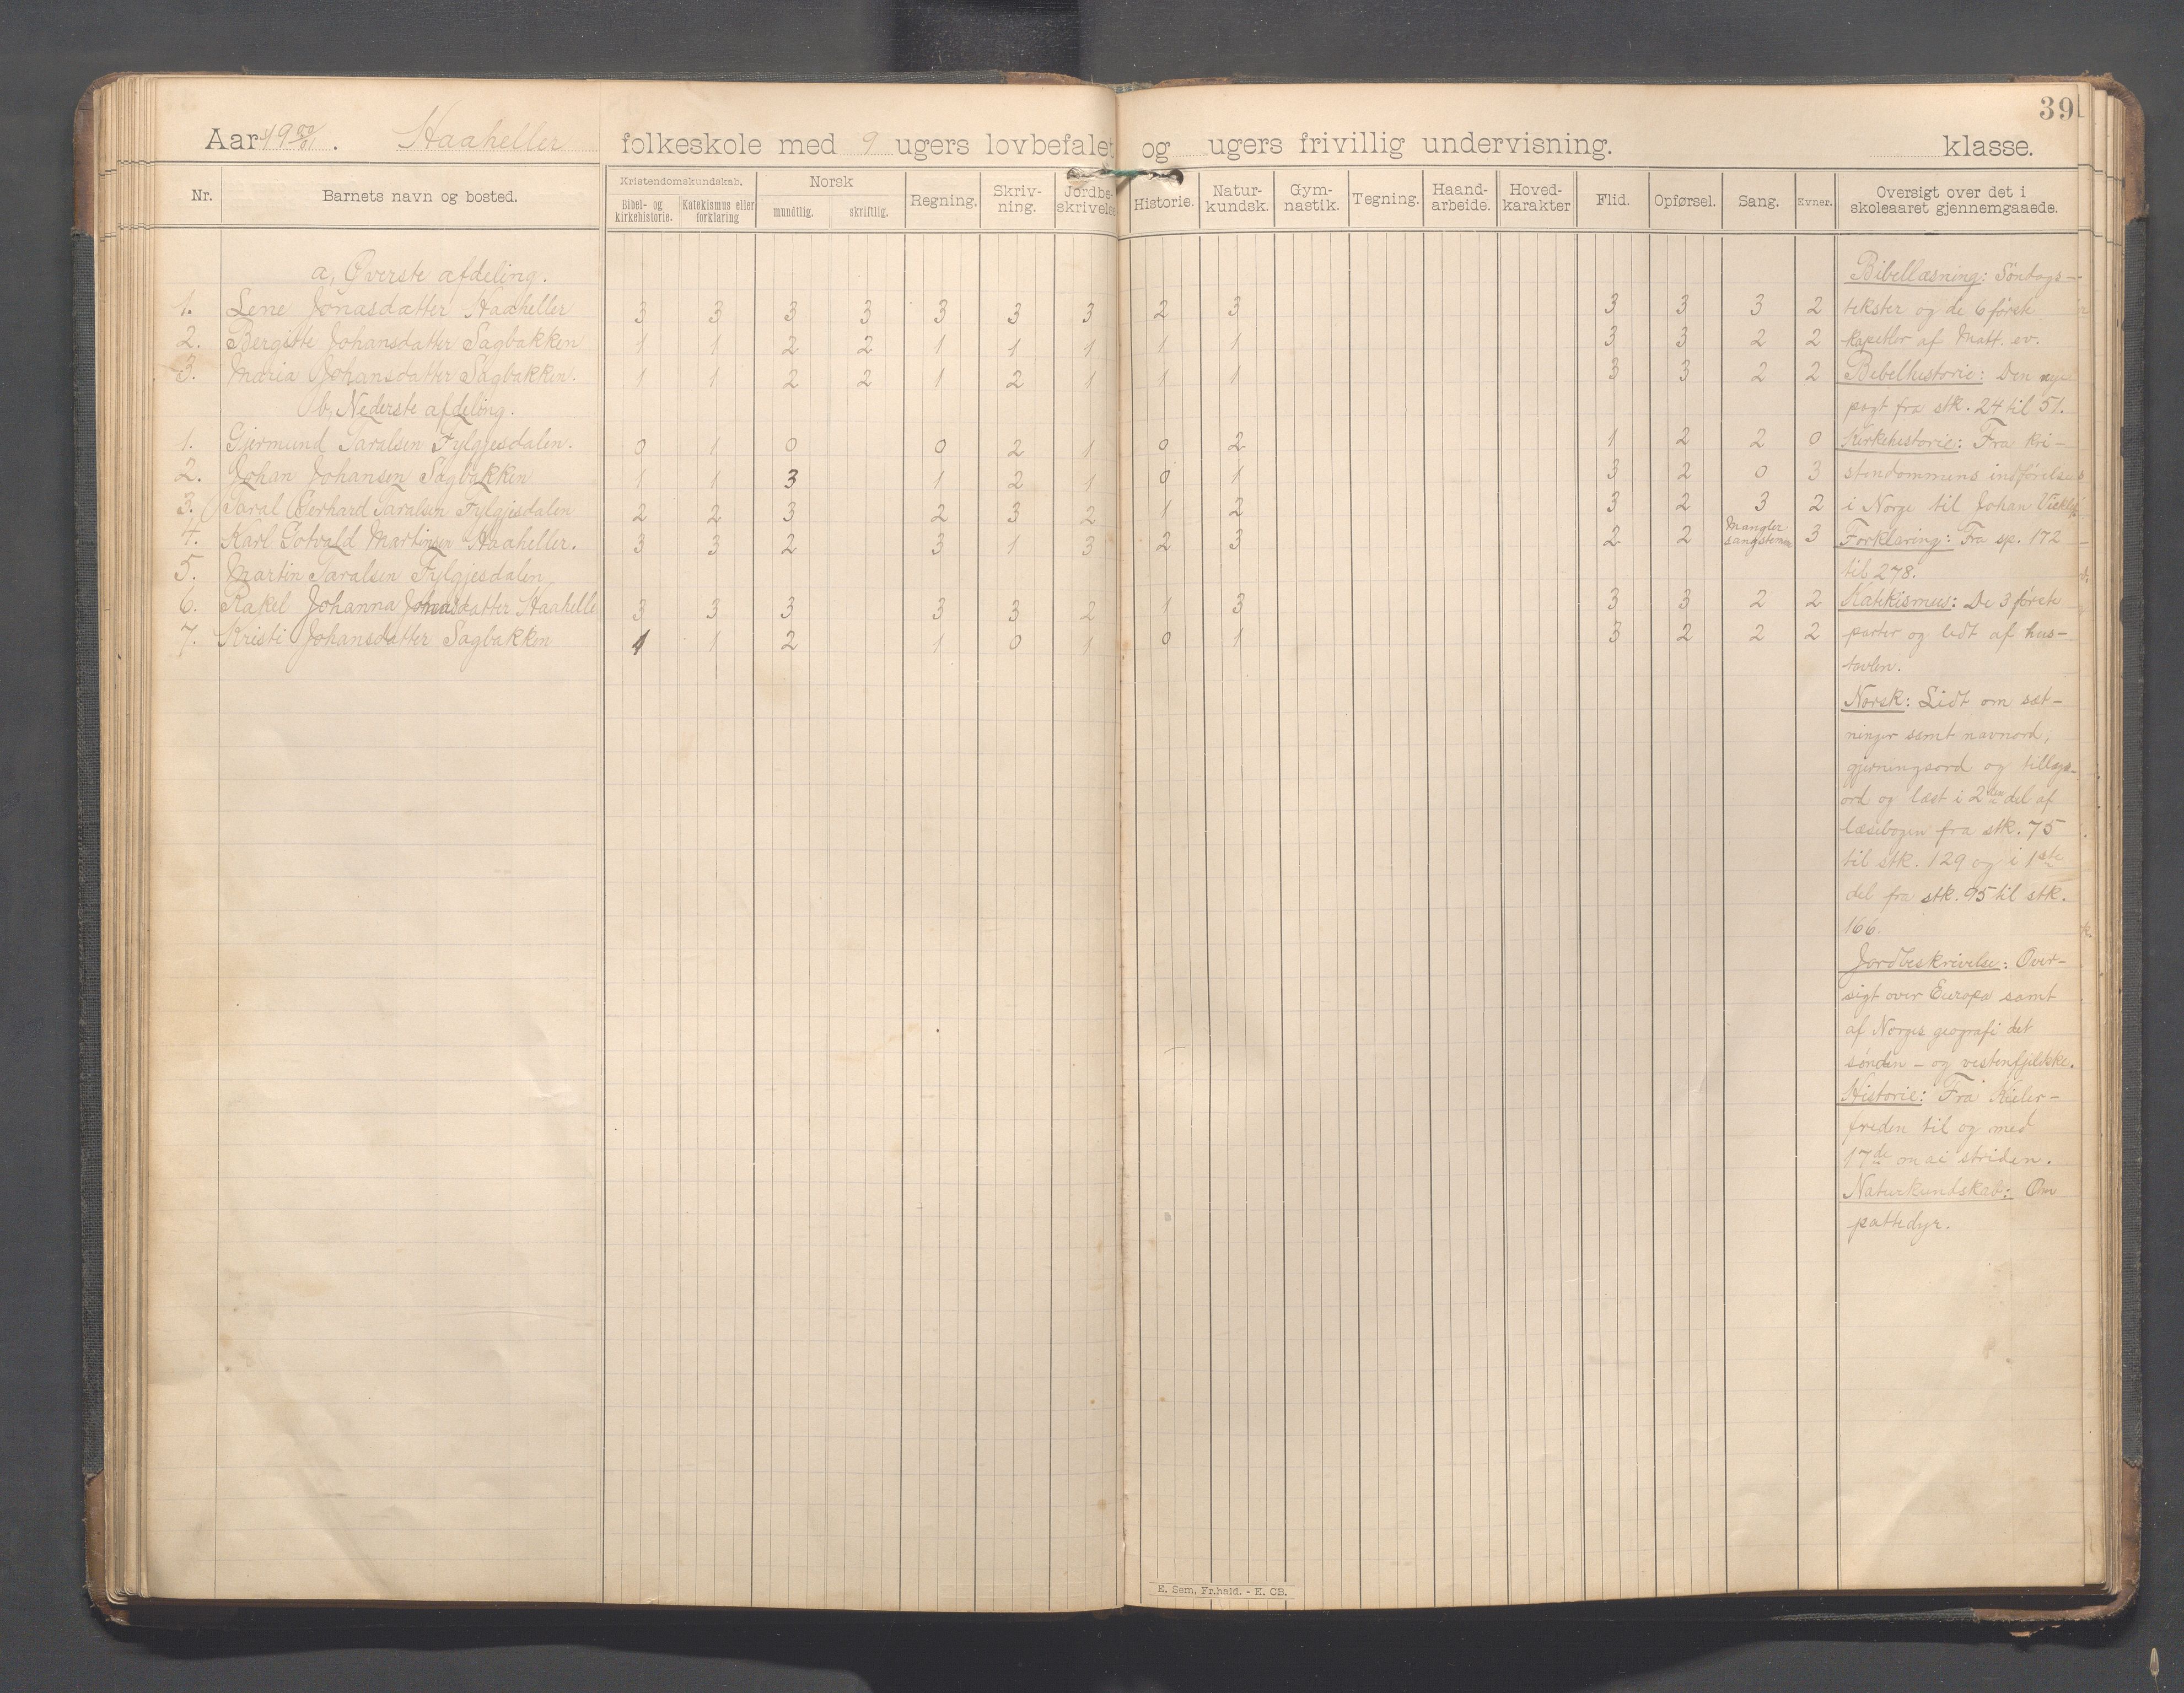 39
Aar 1900/01. Haaheller folkeskole med 9 ugers lovbefalet og ugers frivillig undervisning. klasse.
Nr. Barnets navn og bosted. Kristendomskundskab. Bibel- og kirkehistorie. Katekismus eller forklaring Norsk mundtlig. skriftlig. Regning. Skriv-ning. Jordbe-skrivelse Historie. Natur-kundsk. Gym-nastik. Tegning. Haand-arbeide. Hoved-karakter Flid. Opførsel. Sang. Evner. Oversigt over det i skoleaaret gjennemgaaede.
a, Øverste afdeling.
1. Lene Jonasdatter Haaheller 3 3 3 3 3 3 3 2 3 3 3 3 2
2. Bergitte Johansdatter Sagbakken 1 1 2 2 1 1 1 1 1 3 3 2 2
3. Maria Johansdatter Sagbakken. 1 1 2 2 1 2 1 1 1 3 3 2 2
b, Nederste afdeling.
1. Gjermund Taralsen Fylgjesdalen. 0 1 0 0 2 1 0 2 1 2 2 0
2. Johan Johansen Sagbakken 1 1 3 1 2 1 0 1 3 2 0 3
3. Taral Gerhard Taralsen Fylgjesdalen 2 2 3 2 3 2 1 2 3 2 3 2
4. Karl Gotvald Martinsen Haaheller. 3 3 2 3 1 3 2 3 2 2 Mangler sangstemme 3
5. Martin Taralsen Fylgjesdalen
6. Rakel Johanna Jonasdatter Haahelle 3 3 3 3 3 2 1 3 3 3 2 2
7. Kristi Johansdatter Sagbakken 1 1 2 1 0 1 0 1 3 2 2 2
Bibellæsning: Söndags-
tekster og de 6 første
kapitler af Matt. ev.
Bibelhistorie: Den nye
pagt fra stk. 24 til 51.
Kirkehistorie: Fra kri-
stendommens indførelse
i Norge til Johan
Forklaring: Fra sp. 172
til 278.
Katekismus: De 3 første
parter og lidt af hus-
tavlen.
Norsk: Lidt om sæt-
ninger samt navnord,
gjerningsord og tillægs-
ord og læst i 2den del af
læsebogen fra stk. 75
til stk. 129 og i 1ste
del fra stk. 95 til stk.
166.
Jordbeskrivelse: Over-
sigt over Europa samt
af Norges geografi det
sønden- og vestenfjeldske.
Historie: Fra Kieler-
freden til og med
17de mai striden.
Naturkundskab: Om
pattedyr.
E. Sem, Fr.hald. - E. CB.